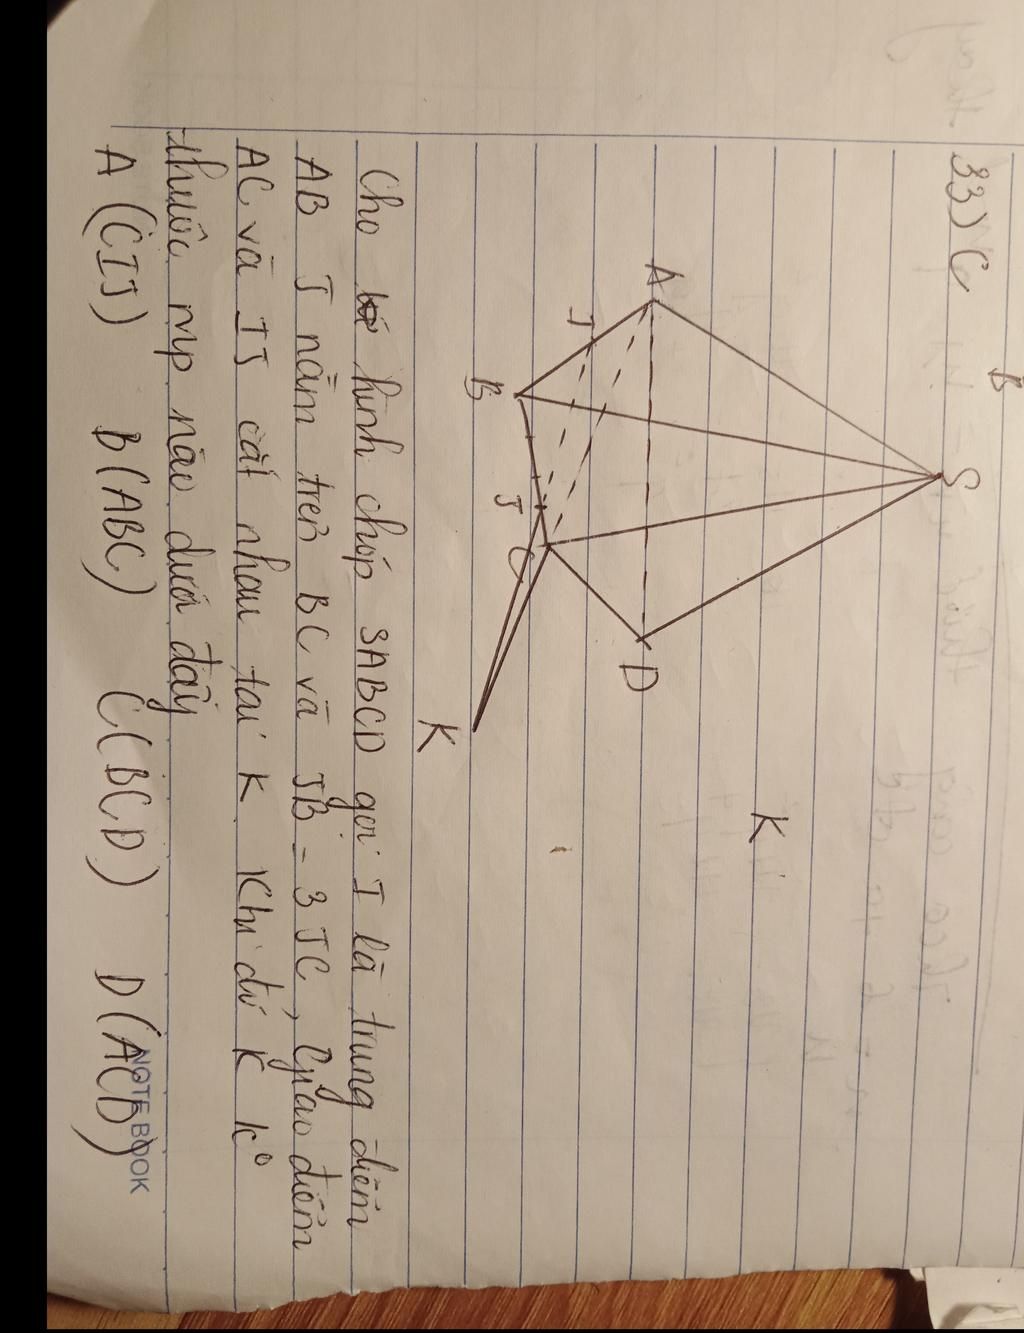 33) C
B
S
A
I
B
J
C
D
K
K
Cho hình chóp SABCD gọi I là trung điểm
AB J nằm trên BC và JB = 3 JC, Giao điểm
AC và IJ cắt nhau tại K Khi đó K k°
thuộc mp nào dưới đây
A (CIJ) B (ABC) C (BCD) D (ACD)
NOTEBOOK